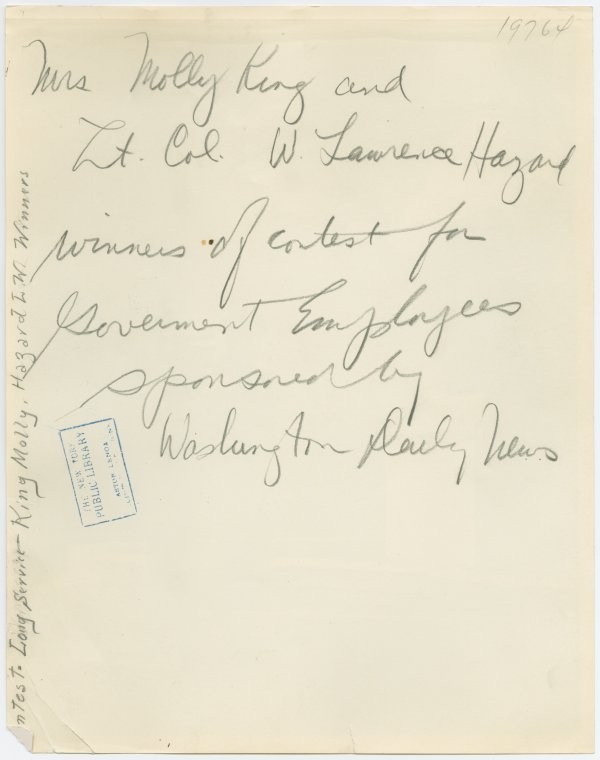 19764
Mrs Molly King and
Lt. Col. W. Lawrence Hazard
winners of contest for
Goverment Employees
sponsored by
Washington Daily News
THE NEW YORK
PUBLIC LIBRARY
ASTOR LENOX
ntest- Long Service- King Molly, Hazard L.W. Winners